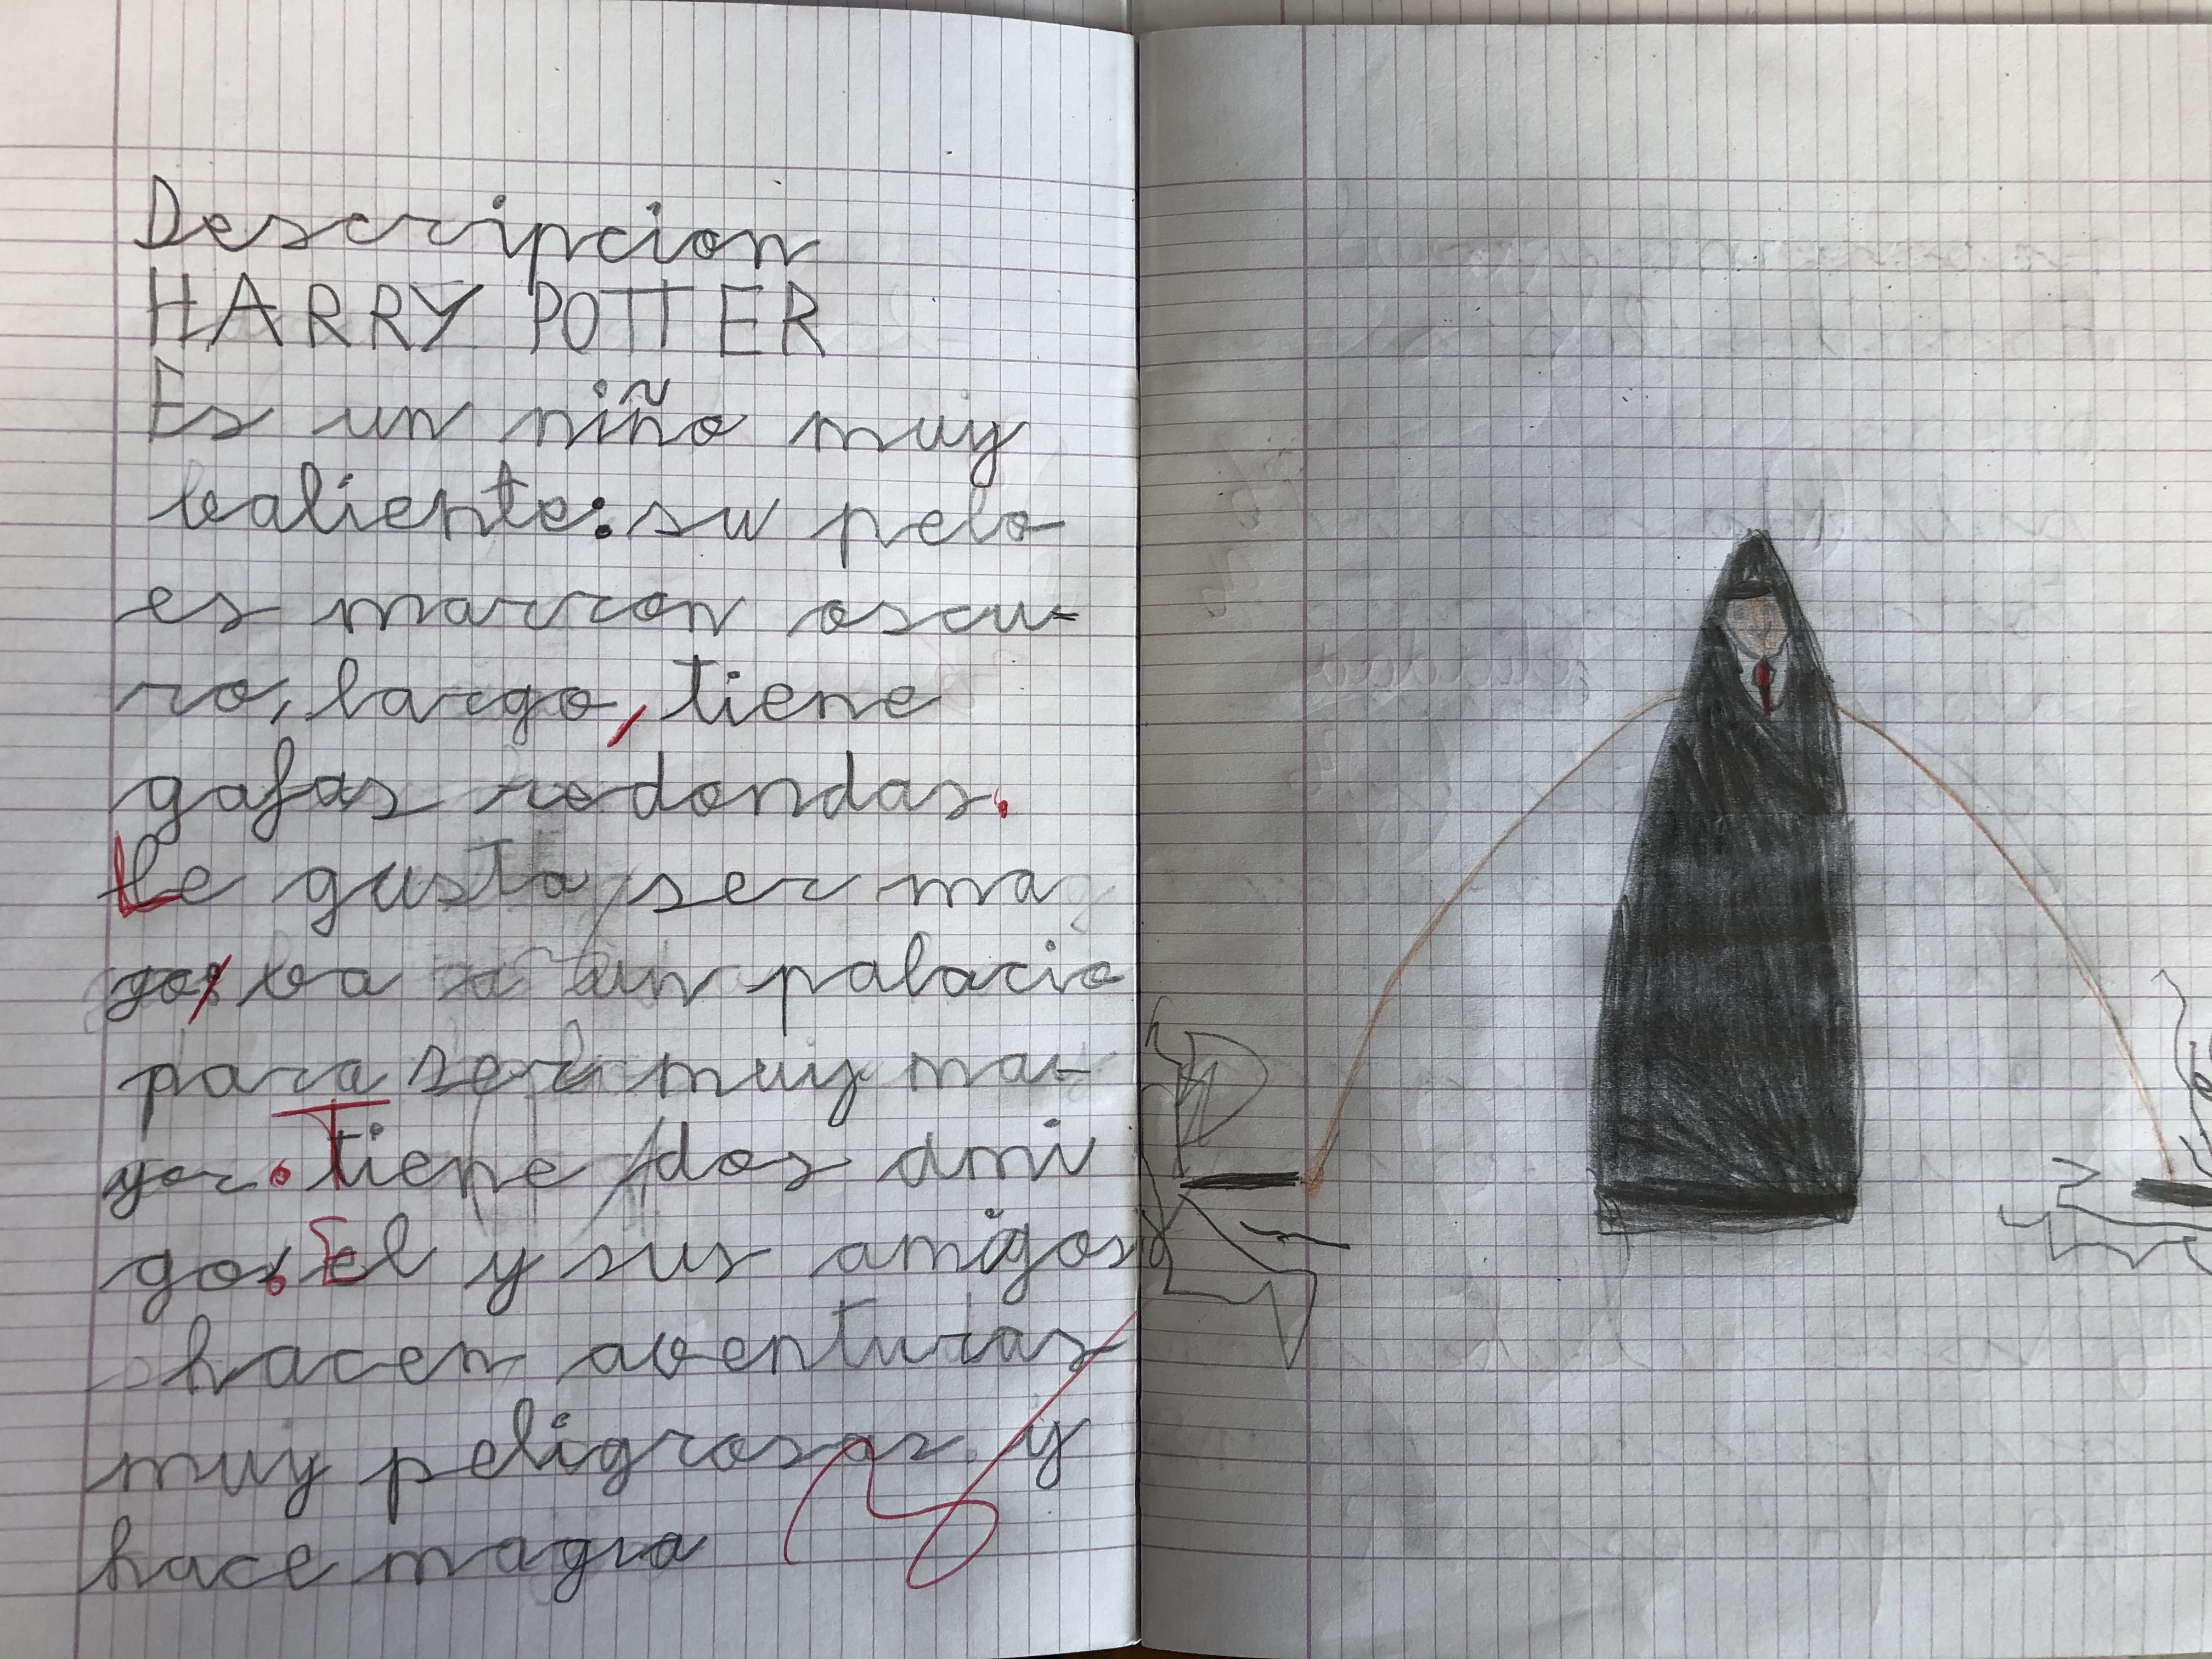 Descripcion
HARRY POTTER
Es un niño muy
baliente: su pelo
es marron oscu-
ro, largo, tiene
gafas redondas.
Le gusta ser ma
go, ba a un palacio
para ser muy ma-
yor. Tiene dos ami
gos. El y sus amigos
hacen aventuras
muy peligrosas y
hace magia